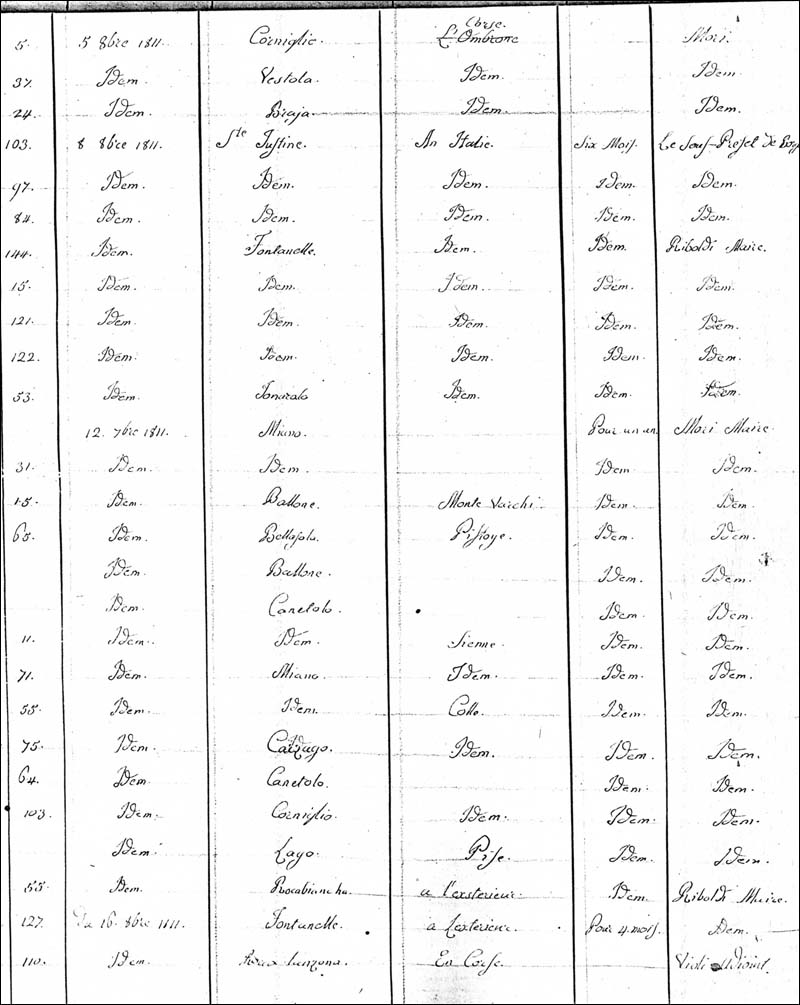 Corse.
5. 5 8bre 1811. Corniglio. L'Ombrone Mori.
37. Idem. Vestola. Idem. Idem.
24. Idem. Braja. Idem. Idem.
103. 8 8bre 1811. Ste Justine. En Italie. Six Mois. Le Sous-Préfet de
97. Idem. Idem. Idem. Idem. Idem.
84. Idem. Idem. Idem. Idem. Idem.
144. Idem. Fontanelle. Idem. Idem. Riboldi Maire.
15. Idem. Idem. Idem. Idem. Idem.
121. Idem. Idem. Idem. Idem. Idem.
122. Idem. Idem. Idem. Idem. Idem.
53. Idem. Idem. Idem. Idem.
12. 7bre 1811. Miano. Pour un an. Mori Maire.
31. Idem. Idem. Idem. Idem.
15. Idem. Ballone. Monte Varchi. Idem. Idem.
65. Idem. Bellasola. Pistoye. Idem. Idem.
Idem. Ballone. Idem. Idem.
Idem. Canetolo. Idem. Idem.
11. Idem. Idem. Sienne. Idem. Idem.
71. Idem. Miano. Idem. Idem. Idem.
55. Idem. Idem. Colle. Idem. Idem.
75. Idem. Idem. Idem. Idem.
64. Idem. Canetolo. Idem. Idem.
103. Idem. Corniglio. Idem. Idem. Idem.
Idem. Lago. Pise. Idem. Idem.
55. Idem. Rocabiancha. a l'exsterieur. Idem. Riboldi Maire.
127. Du 16. 8bre 1811. Fontanelle. a L'exterieur. Pour 4 mois. Idem.
110. Idem. En Corse. Violi Adjoint